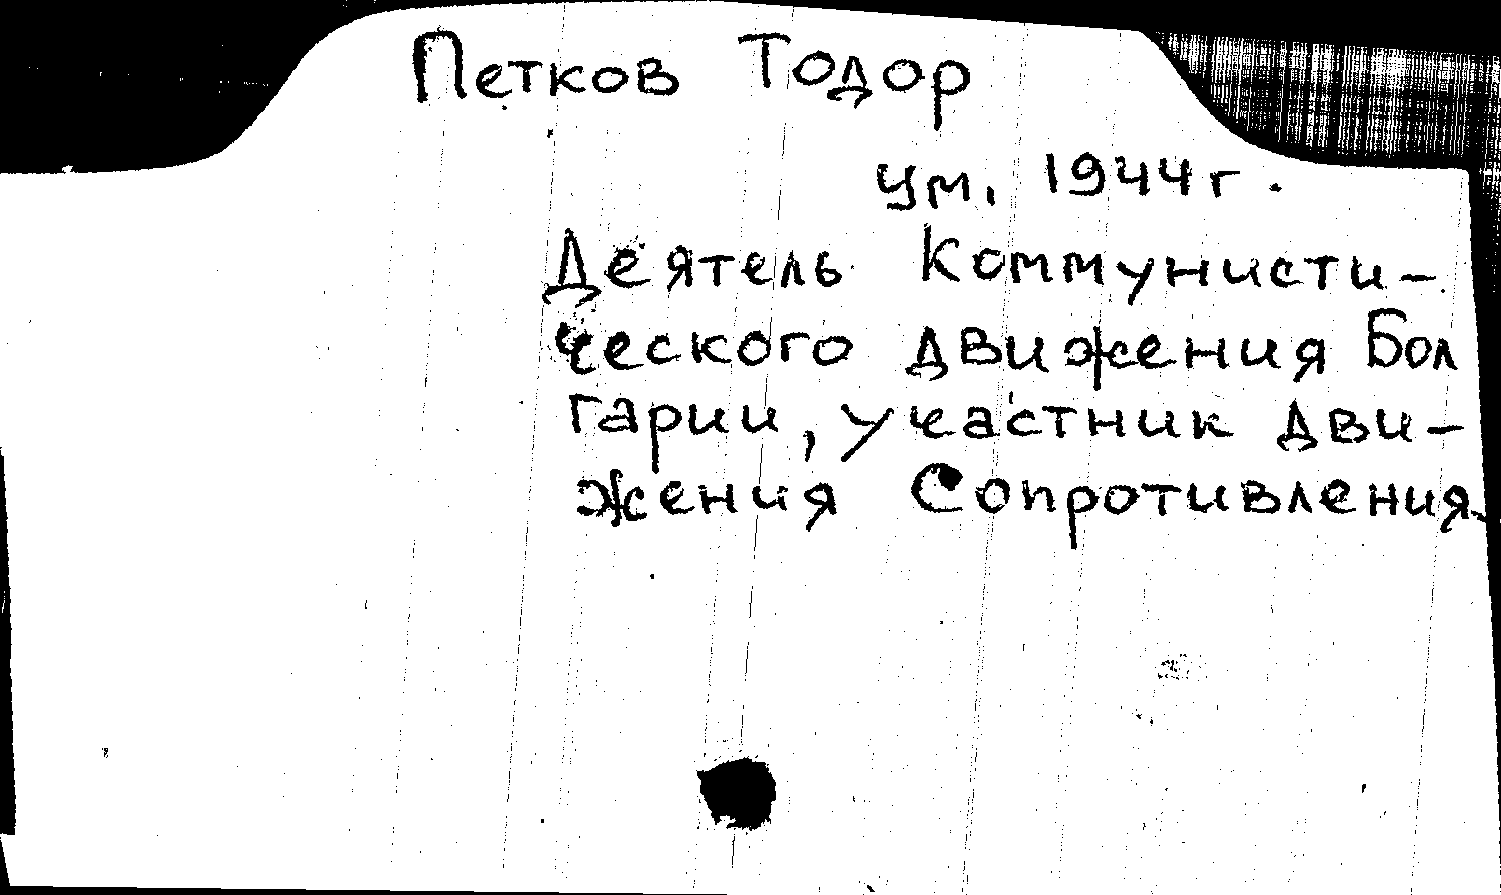 Петков Тодор
ум. 1944 г.
Деятель Коммунисти-
ческого движения Бол
гарии, участник дви-
жения Сопротивления.